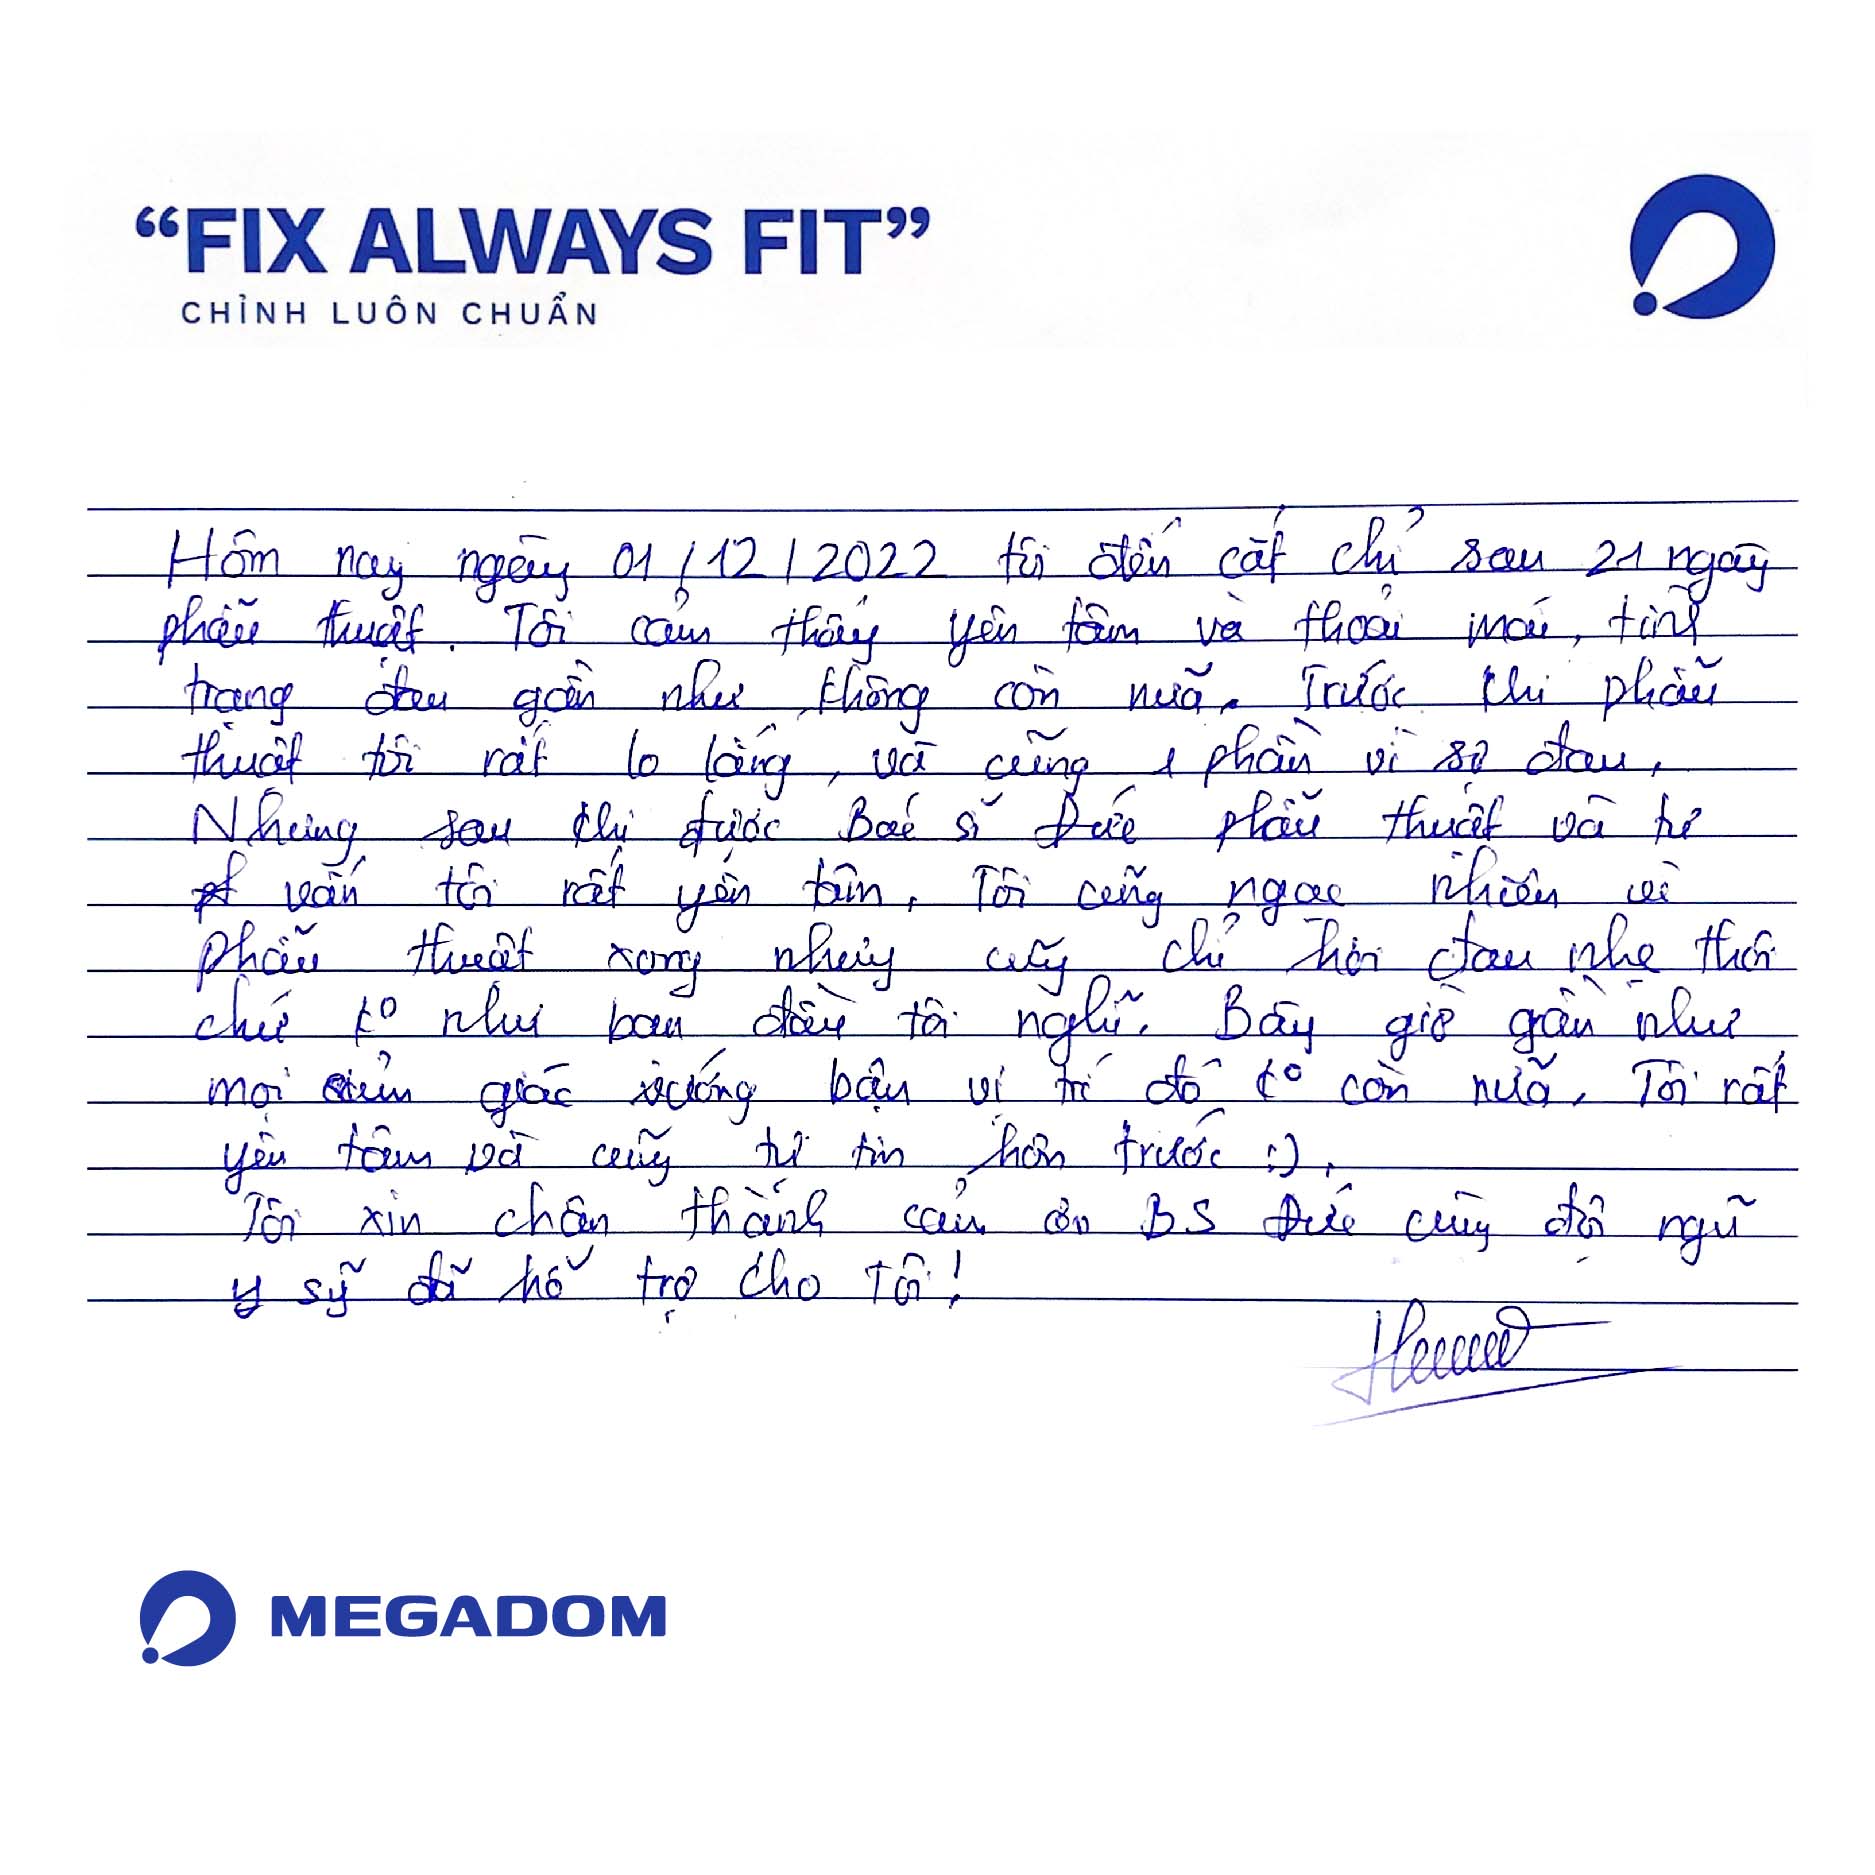 “FIX ALWAYS FIT”
CHỈNH LUÔN CHUẨN
Hôm nay ngày 01/12/2022 tôi đến cắt chỉ sau 21 ngày
phẫu thuật. Tôi cảm thấy yên tâm và thoải mái, tình
trạng đau gần như không còn nữa. Trước khi phẫu
thuật tôi rất lo lắng, và cũng 1 phần vì sợ đau.
Nhưng sau khi được Bác sĩ Đức phẫu thuật và tư
vấn tôi rất yên tâm. Tôi cũng ngạc nhiên vì
phẫu thuật xong nhưng cũng chỉ hơi đau nhẹ thôi
chứ k° như ban đầu tôi nghĩ. Bây giờ gần như
mọi cảm giác vướng bận vị trí đó k° còn nữa. Tôi rất
yên tâm và cũng tự tin hơn trước :).
Tôi xin chân thành cảm ơn BS Đức cùng đội ngũ
y sỹ đã hỗ trợ cho Tôi!
MEGADOM